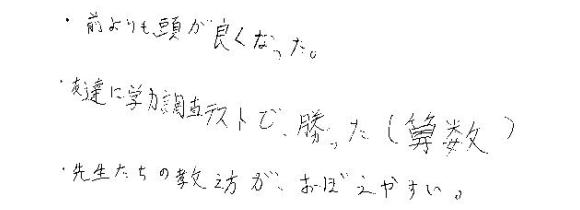 ・前よりも頭が良くなった。
・友達に学力調査テストで、勝った(算数)
・先生たちの教え方が、おぼえやすい。